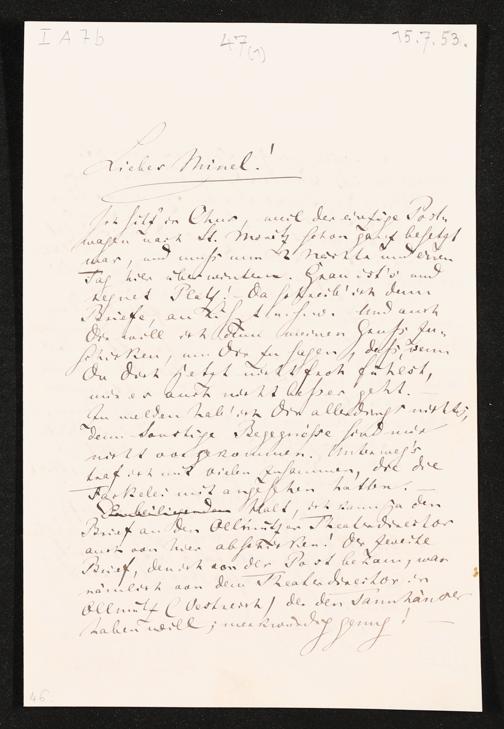 I A 7b 47 (1) 15.7.53.
Liebes Minel!
Ich sitz' in Chur, weil der einzige Post-
wagen nach St. Moritz schon ganz besetzt
war, und muss nun 2 Nächte und einen
Tag hier überwintern. Grau ist's und
regnet Platz! Da schreib' ich denn
Briefe, an
Dir will ich denn meinen Gruss zu-
schicken, um Dir zu sagen, dass, wenn
Du Dich jetzt nicht froh fühlst,
mir es auch nicht besser geht. —
Zu melden hab' ich Dir allerdings nichts,
denn sonstige Begegnisse sind mir
nicht vorgekommen. Unterweg's
traf ich mit Vielen zusammen, die die
mit angesehen hatten. —
Halt, ich kann ja den
Brief an den Ollmützer Theaterdirector
auch von hier abschicken! Der zweite
Brief, den ich von der Post bekam, war
nämlich von dem Theaterdirector in
Ollmütz (Oestreich) der den Tannhäuser
haben will; merkwürdig genug! —
46